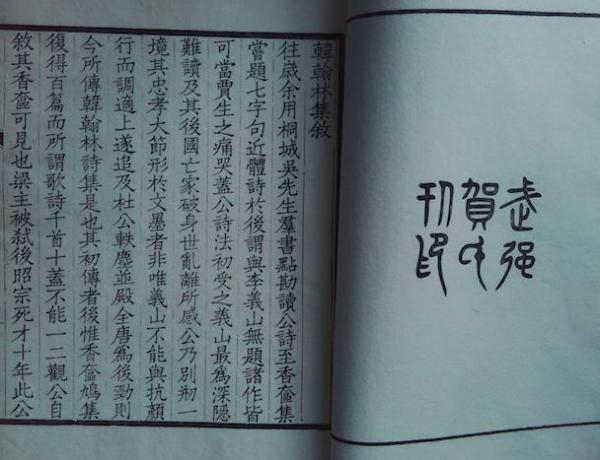 武强
賀氏
刊印
韓翰林集敘
往歲余用桐城吳先生羣書點勘讀公詩至香奩集
嘗題七字句近體詩於後謂與李義山無題諸作皆
可當賈生之痛哭蓋公詩法初受之義山最爲深隱
難讀及其後國亡家破身世亂離所感公乃別剏一
境其忠孝大節形於文墨者非唯義山不能與抗顏
行而調適上遂追及杜公軼塵並殿全唐爲後勁則
今所傳韓翰林詩集是也其初傳者後惟香奩鳩集
復得百篇而所謂歌詩千首十蓋不能一二觀公自
敘其香奩可見也梁主被弒後昭宗死才十年此公